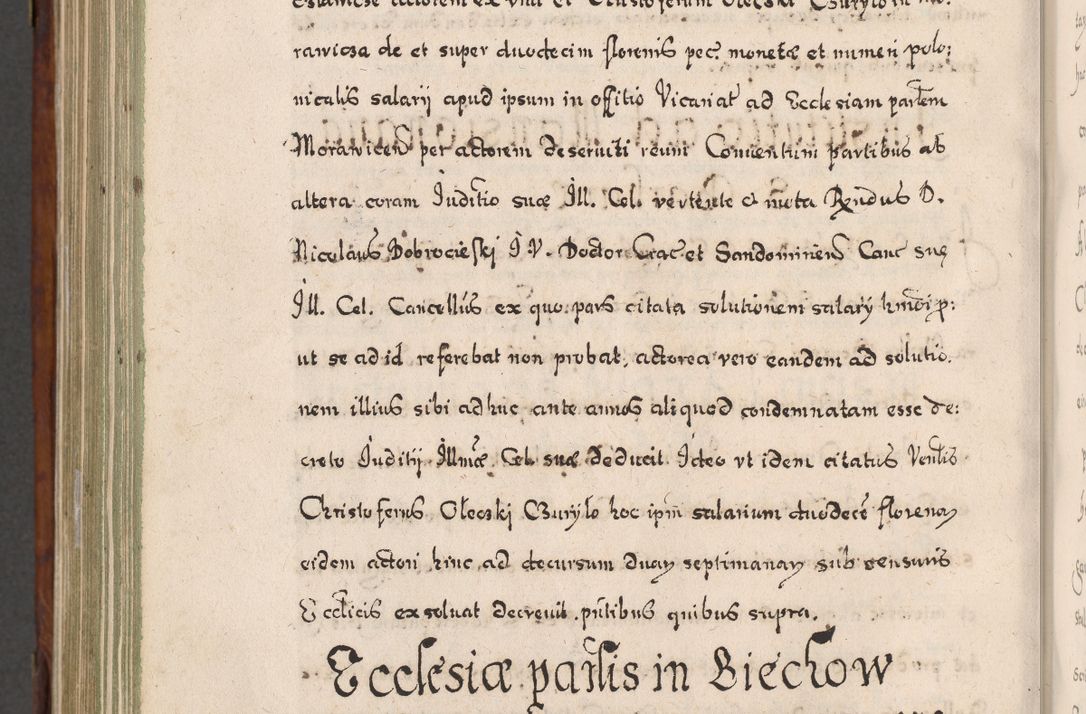 rawicza de et super duodecim florenis pec: monetæ et numeri polo:
nicalis salarij apud ipsum in offitio Vicariat ad Ecclesiam parlem
Morawicen per actorem deseruiti reum Conuentum partibus ab
altera coram Juditio suæ Ill. Cel. vertente et mota Rndus D.
Nicolaus Dobrocieski J. V. Doctor Crac et Sandomirien Canc suę
Ill. Cel. Cancellus ex quo pars citata solutionem salarij hmoi p:
ut se ad id referebat non probat, actorea vero eandem ad solutio.
nem illius sibi adhuc ante annos aliquod condemnatam esse de:
creto Juditij Illmæ Cel. suæ deducit. Icteo vt idem citatus Venlis
Christoferus Oleczki Buryło hoc ipm salarium duodece florenoꝝ
eidem actori hinc ad decursum duaꝝ septimanaꝝ sub censuris
Ecclicis exsoluat decreuit. pntibus quibus supra.
Ecclesiæ parlis in Biechow